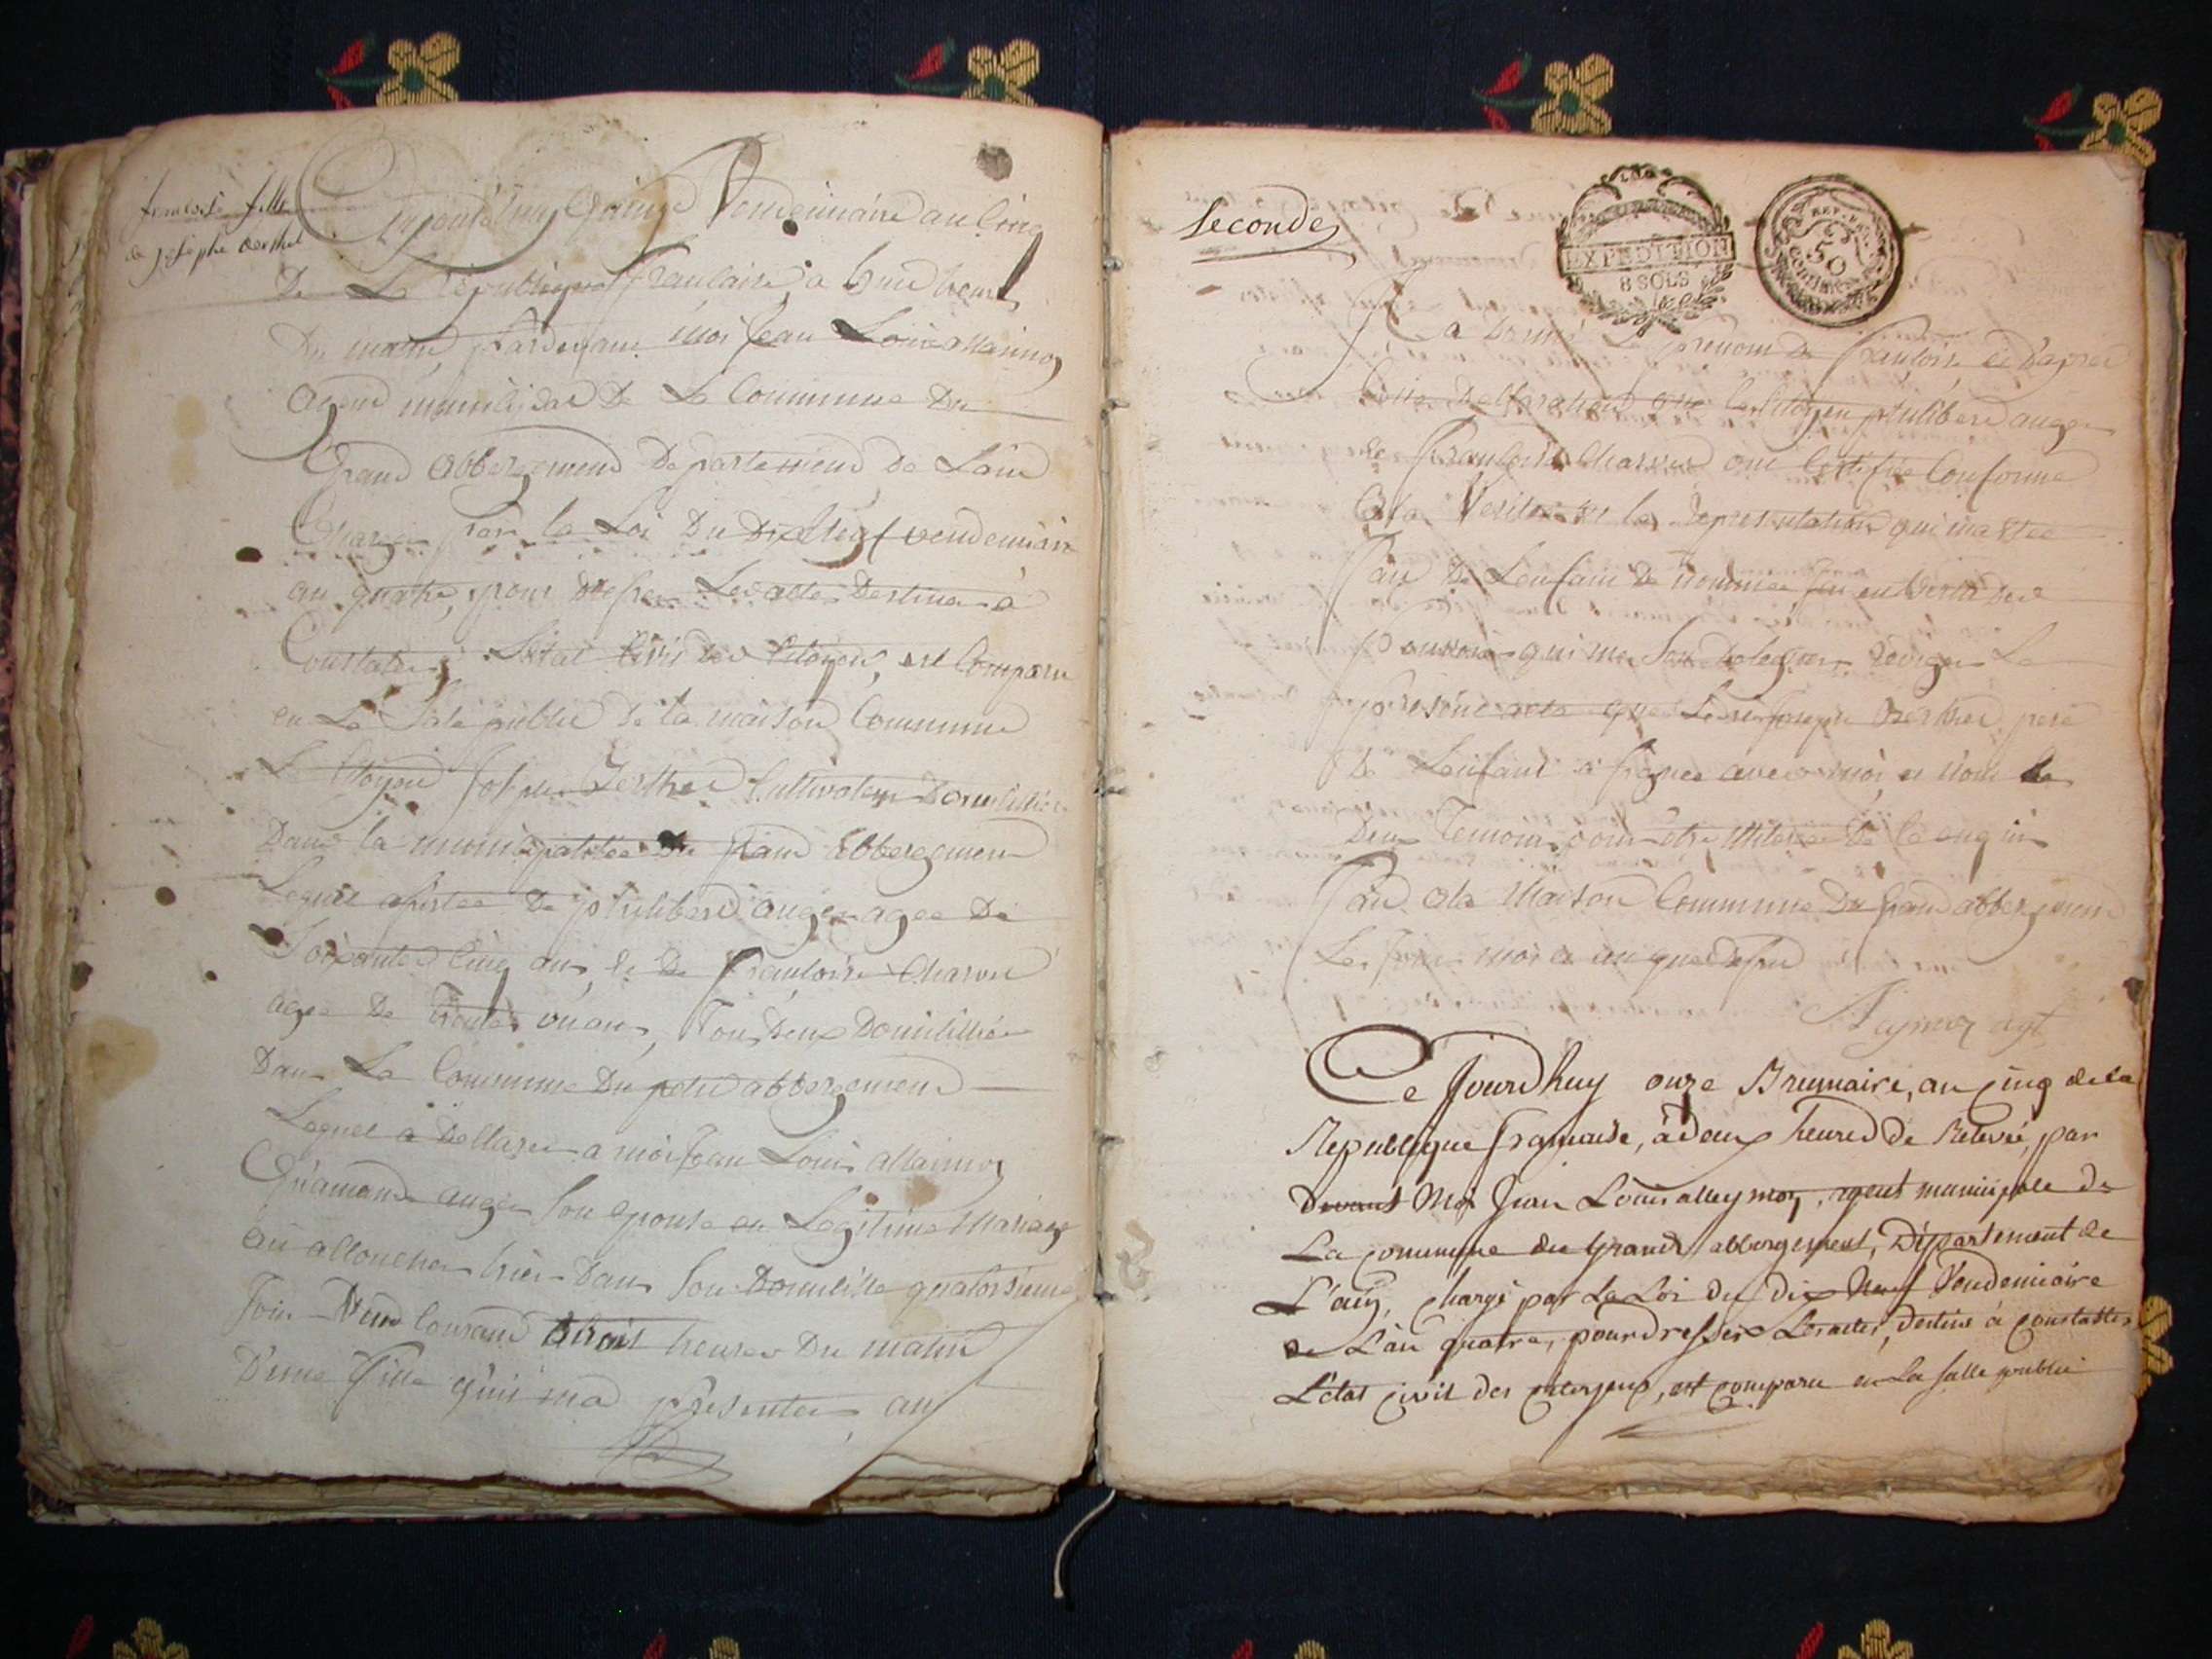 francoise fille
de josephe berthet
aujourdhuy quinze Vendemiaire an Cinq
De La republique francaise, a huit heures
Du matin, pardevant moi Jean Louis allaimoz
agent municipal De La Commune Du
Grand abbergement Departement De Lain
Charger par la Loi Du Dix Neuf vendemiaire
an quatre, pour dresser Les actes Destines à
Constater Létat Civil des Citoyens, est Comparu
en La Sale public de la maison Commune
Le Citoyen Joseph Berthet Cultivateur Domicilliée
Dans la municipalitée Du grand abbergement
Lequel assistée De philibert auger agee De
Soixante Cinq ans, et De francoise Charvet
agee De trente ans, Tous Deux Domicilliée
Dans La Commune Du petit abbergement
Lequel a Declaree a moi Jean Louis allaimoz
auger Son epouse en Legitime Mariage
ai allouchee hier Dans Son Domicille quatorsieme
Jour Du Courant a trois heures Du matin
D'une fille quil ma presenter, au
Seconde
EXPEDITION
8 SOLS
REP. FRA.
50
CENTIMES
a Donné Le prenom De francoise et Dapres
Cette Declaration que Les Citoyen philibert auger
et francoise Charvet ont Certifiee Conforme
a la Verité et la representation qui ma étée
fait De Lenfant De nommee Jai en Vertu Des
pouvoir qui me Son Deleguer rediger Le
présent acte que Joseph Berthet pere
De Lenfant a signee avec moi, et non les
Deux Temoins pour être De ce enquis
fait a la Maison Commune Du grand abbergement
Les Jour mois et an que Dessus
Aymoz agt
Ce Jourdhuy onze Brumaire, an Cinq de la
Republique française, à deux heures de Relevée, par
devant Moi Jean Louis alleymoz, agent municipale de
La commune du Grand abbergement, Département de
L'ain, chargé par La Loi du dix Neuf Vendemiaire
de L'an quatre, pour dresser Les actes, destiné à constatter
L'état civil des citoyens, est comparu en La salle public